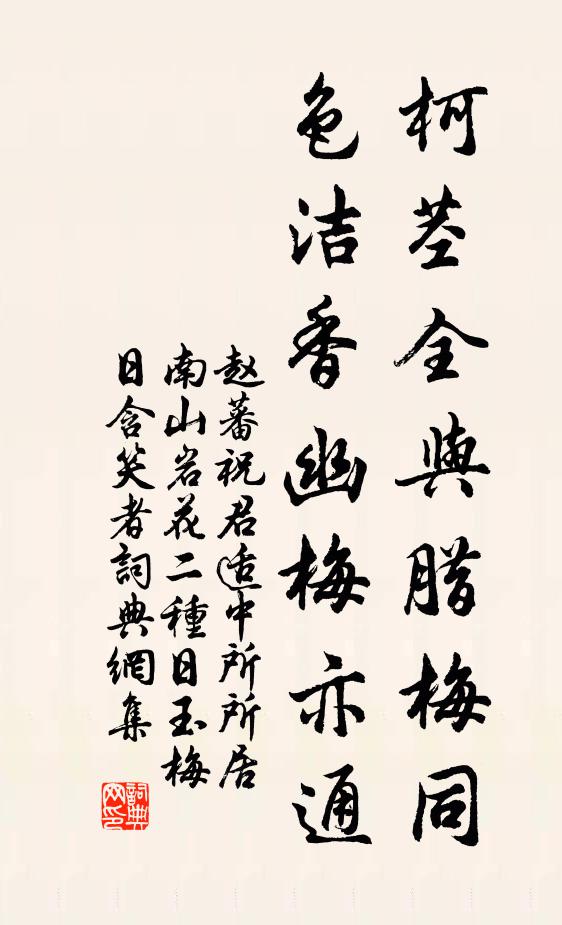 柯茎全與腊梅同
色洁香幽梅亦通
赵蕃祝君适中所所居
南山岩花二種日玉梅
日含笑者詞典網集
詞典网印